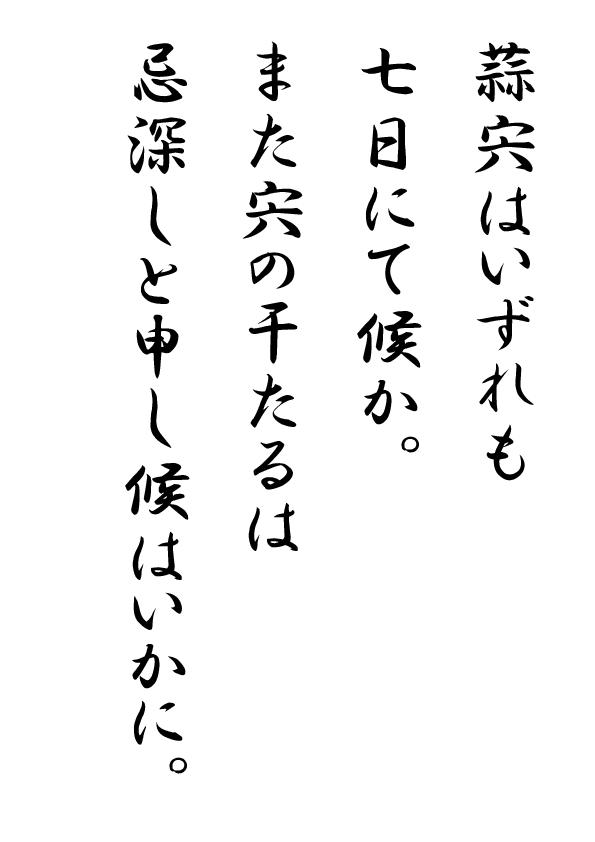 蒜宍はいずれも
七日にて候か。
また宍の干たるは
忌深しと申し候はいかに。